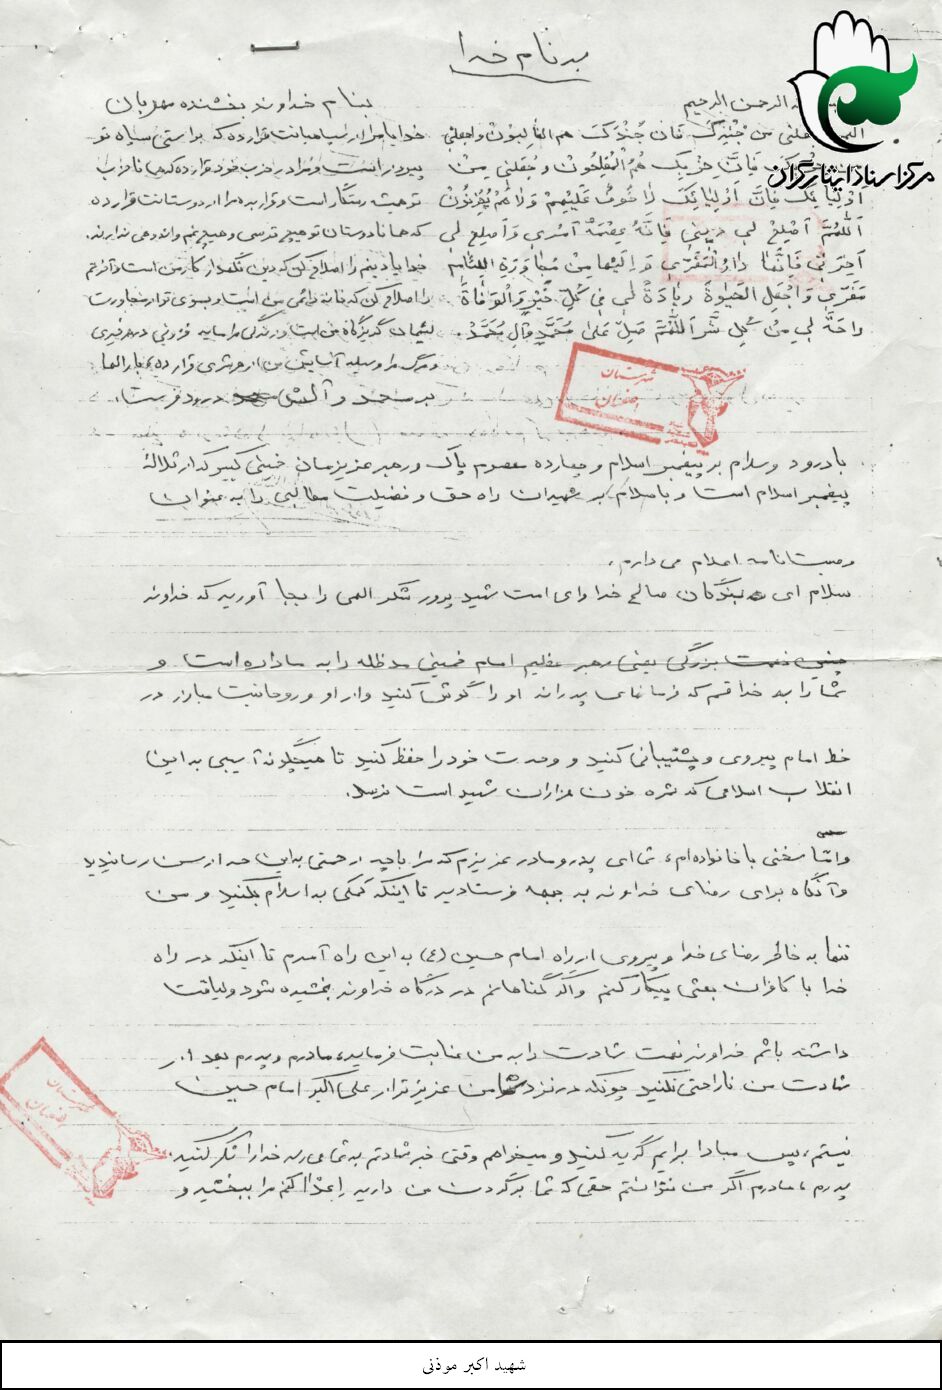 به نام خدا
بسم الله الرحمن الرحیم
اللهم اجعلنی من جندک فان جندک هم الغالبون واجعلنی
من حزبک فان حزبک هم المفلحون و جعلنی من
اولیائک فان اولیائک لا خوف علیهم ولا هم یحزنون
اللهم اصلح لی دینی فانه عصمة امری و اصلح لی
آخرتی فانها دار المقری و الیها من مجاورة اللئام
مفری و اجعل الحیوة زیادة لی فی کل خیر و الوفاة
راحة لی من کل شر اللهم صل علی محمد وآل محمد.
بنام خداوند بخشنده مهربان
خدایا مرا از سپاهیانت قرار ده که براستی سپاه تو
پیروز است و مرا در حزب خود قرار ده که همانا حزب
تو همیشه رستگار است و قرار بده مرا از دوستانت قرار ده
که همانا دوستان تو هیچ ترسی و هیچ غم و اندوهی ندارند.
خدایا دینم را اصلاح کن که دین نگهدار کار من است و آخرتم
را اصلاح کن که خانه دائمی من است و بسوی تو از مجاورت
لئیمان گریزگاه من است و زندگی مرا مایه فزونی در هر خیری
و مرگ مرا وسیله آسایش من از هر شری قرار ده، بارالها
بر محمد و آلش درود فرست.
شهرستان
اصفهان
با درود و سلام بر پیغمبر اسلام و چهارده معصوم پاک و رهبر عزیزمان خمینی کبیر که از ثلالهٔ
پیغمبر اسلام است و با سلام بر شهیدان راه حق و فضیلت مطالبی را به عنوان
وصیتنامه اعلام می دارم.
سلام ای بندگان صالح خدا و ای امت شهید پرور شکر الهی را بجا آورید که خداوند
چنین نعمت بزرگی یعنی رهبر عظیم امام خمینی مدظله را به ما داده است و
شما را به خدا قسم که فرمانهای پدرانه او را گوش کنید و از او و روحانیت مبارز در
خط امام پیروی و پشتیبانی کنید و وحدت خود را حفظ کنید تا هیچگونه آسیبی به این
انقلاب اسلامی که ثمره خون هزاران شهید است نرسد.
و اما سخنی با خانواده ام، شما ای پدر و مادر عزیزم که مرا با چه زحمتی به این حد از سن رساندید
و آنگاه برای رضای خداوند به جبهه فرستادید تا اینکه کمکی به اسلام بکنید و من
تنها به خاطر رضای خدا و پیروی از راه امام حسین (ع) به این راه آمدم تا اینکه در راه
خدا با کافران بعثی پیکار کنم و اگر گناهانم در درگاه خداوند بخشیده شود و لیاقت
داشته باشم خداوند نعمت شهادت را به من عنایت فرماید، مادرم و پدرم بعد از
شهادت من ناراحتی نکنید چونکه در نزد شما من عزیزتر از علی اکبر امام حسین
نیستم، پس مبادا برایم گریه کنید و میخواهم وقتی خبر شهادتم به شما می رسد خدا را شکر کنید.
پدرم، مادرم اگر من نتوانستم حقی که شما بر گردن من دارید را ادا کنم مرا ببخشید و
شهرستان
اصفهان
مرکز اسناد ایثارگران
شهید اکبر موذنی